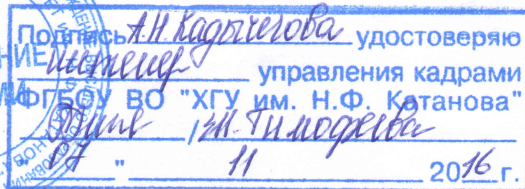 Подпись А.Н. Кадычегова удостоверяю
инженер управления кадрами
ФГБОУ ВО "ХГУ им. Н.Ф. Катанова"
/ Ж. Тимофеева
17 " 11 2016 г.